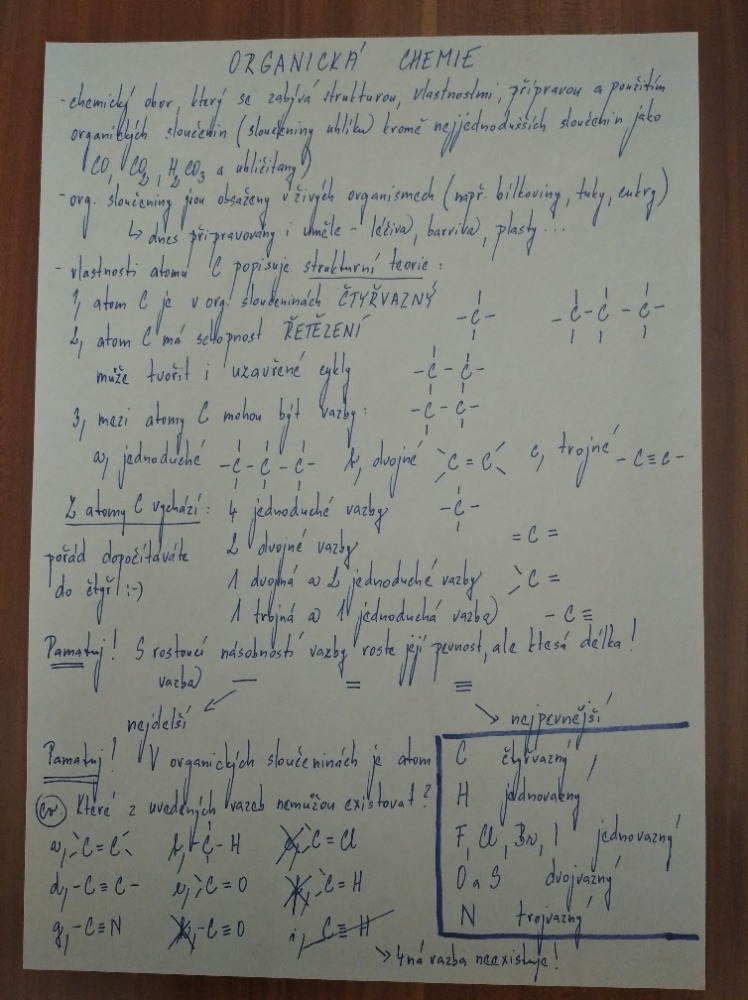 ORGANICKÁ CHEMIE
- chemický obor, který se zabývá strukturou, vlastnostmi, přípravou a použitím
organických sloučenin (sloučeniny uhlíku) kromě nejjednodušších sloučenin jako
CO, CO2, H2CO3 a uhličitany)
- org. sloučeniny jsou obsaženy v živých organismech (např. bílkoviny, tuky, cukry)
↳ dnes připravovány i uměle - léčiva, barviva, plasty...
- vlastnosti atomu C popisuje strukturní teorie:
1, atom C je v org. sloučeninách ČTYŘVAZNÝ -C- -C-C-C-
2, atom C má schopnost ŘETĚZENÍ
může tvořit i uzavřené cykly -C-C-
-C-C-
3, mezi atomy C mohou být vazby:
a, jednoduché -C-C-C- b, dvojné C=C c, trojné -C≡C-
Z atomy C vychází: 4 jednoduché vazby -C-
2 dvojné vazby =C=
pořád dopočítáváte
do čtyř! :-)
1 dvojná a 2 jednoduché vazby >C=
1 trojná a 1 jednoduchá vazba -C≡
Pamatuj! S rostoucí násobností vazby roste její pevnost, ale klesá délka!
vazba — = ≡
nejdelší nejpevnější
Pamatuj! V organických sloučeninách je atom
C čtyřvazný
H jednovazný
F, Cl, Br, I jednovazný
O a S dvojvazný
N trojvazný
cv. Které z uvedených vazeb nemůžou existovat?
a, C=C b, -C-H c, C=Cl
d, -C≡C- e, C=O f, C=H
g, -C≡N h, -C≡O i, C≣H
↳ 4ná vazba neexistuje!